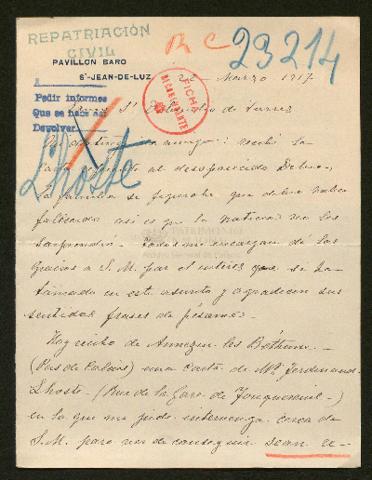 REPATRIACIÓN
CIVIL
R C 23214
PAVILLON BARO
St-JEAN-DE-LUZ
22 - Marzo 1917
Pedir informes
Que se hace así
Devolver
FICHA
Lhoste
de Torres
mi amigo: recibí la
carta respecto al desaparecido
la familia se figuraba que debía haber
fallecido así es que la noticia no los
sorprendió - Todos me encargan dé las
gracias a S. M. por el interés que se ha
tomado en este asunto y agradecen sus
sentidas frases de pésame -
Hoy recibo de Annezin les Béthune -
(Pas de Calais) una carta de Mr Ferdinand
Lhoste - (Rue de la Gare de Fouquereuil -)
en la que me pide intervenga cerca de
S. M. para ver de conseguir sean re-